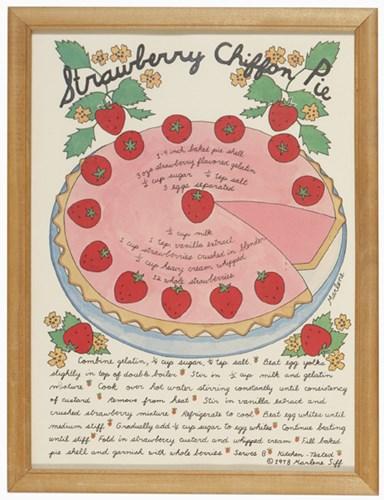 Strawberry Chiffon Pie
1-9 inch baked pie shell
3 oz strawberry flavored gelatin
½ cup sugar ¼ tsp salt
3 eggs separated
½ cup milk
1 tsp vanilla extract
1 cup strawberries crushed in blender
½ cup heavy cream whipped
12 whole strawberries
Marlene
Combine gelatin, ¼ cup sugar, ¼ tsp salt Beat egg yolks
slightly in top of double boiler Stir in ½ cup milk and gelatin
mixture Cook over hot water stirring constantly until consistency
of custard Remove from heat Stir in vanilla extract and
crushed strawberry mixture Refrigerate to cool Beat egg whites until
medium stiff Gradually add ¼ cup sugar to egg whites Continue beating
until stiff Fold in strawberry custard and whipped cream Fill baked
pie shell and garnish with whole berries Serves 8 Kitchen-Tested
© 1978 Marlene Siff